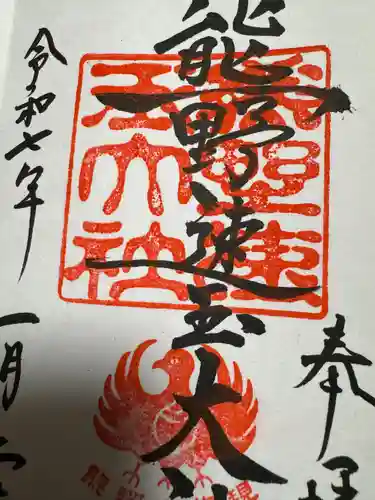 奉拝
熊野速玉大社
令和七年
一月
熊野速玉大社